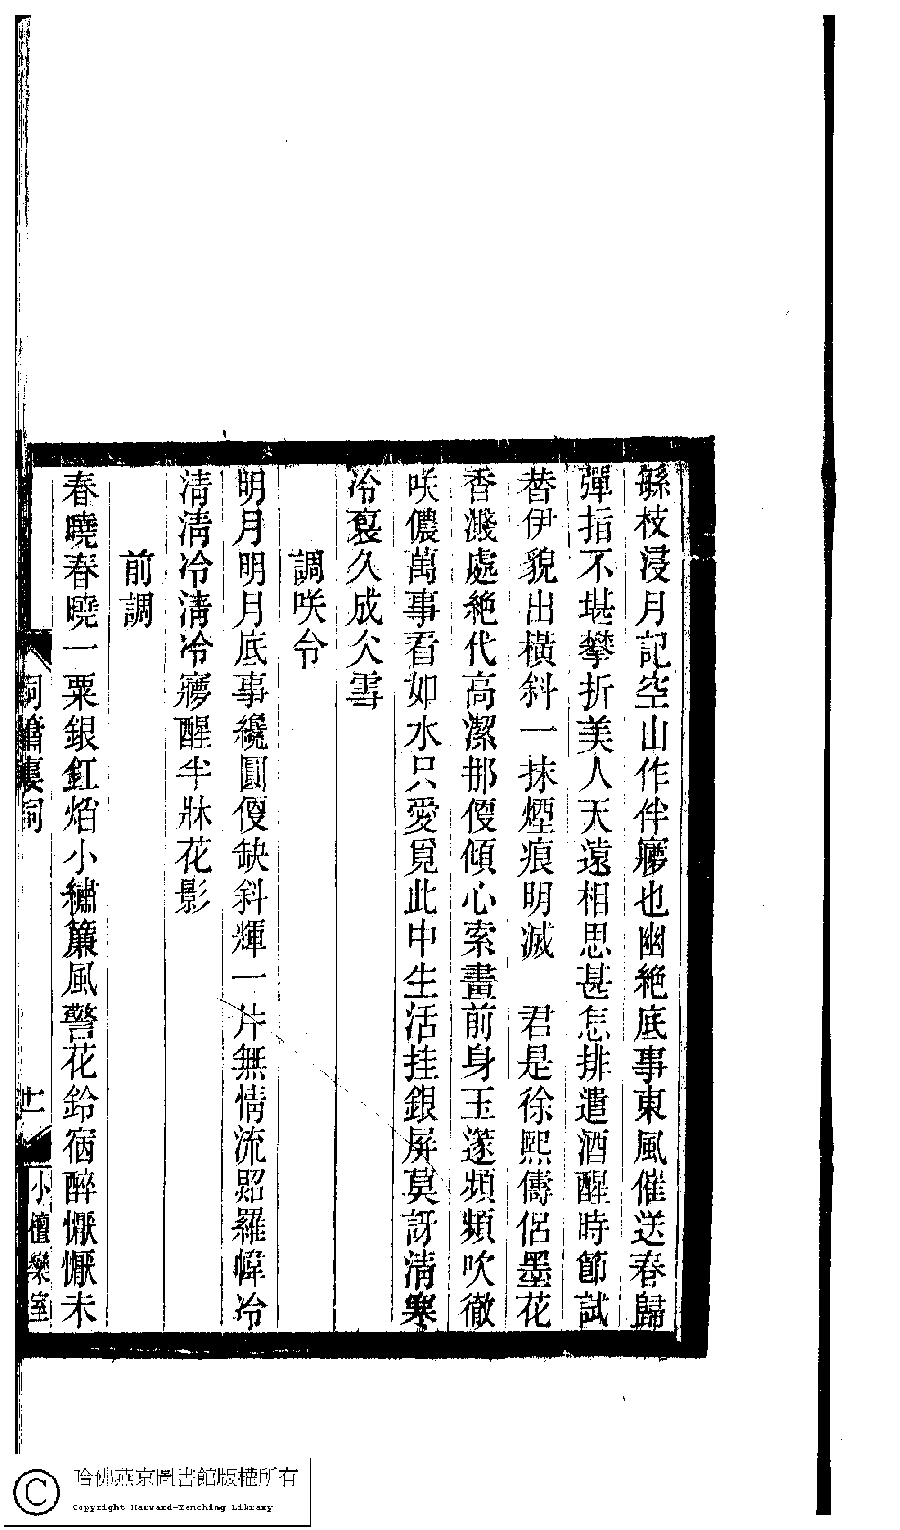 緜枝浸月記空山作伴㝱也幽絶底事東風催送春歸
彈指不堪攀折美人天遠相思甚怎排遣酒醒時節試
替伊貌出橫斜一抹煙痕明滅　君是徐熙儔侶墨花
香濺處絶代高潔那便傾心索畫前身玉邃頻頻吹徹
咲儂萬事看如水只愛覓此中生活挂銀屏莫訝清寒
冷裛久成仌雪
調咲令
明月明月底事纔圓便缺斜輝一片無情流照羅幃冷
清清冷清冷㝱醒半牀花影
前調
春曉春曉一粟銀釭焰小繡簾風警花鈴宿醉懨懨未
洞簫樓詞
十一
小檀欒室
哈佛燕京圖書館版權所有
Copyright Harvard-Yenching Library